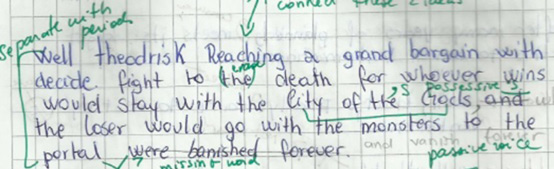 connect these ideas
Separate with
period
Well theodrisk Reaching a grand bargain with
decide fight to the death for whoever wins
's possessive's
would stay with the City of the Gods, and
the loser would go with the monsters to the
portal were banished forever. and vanish forever
missing word
passive voice